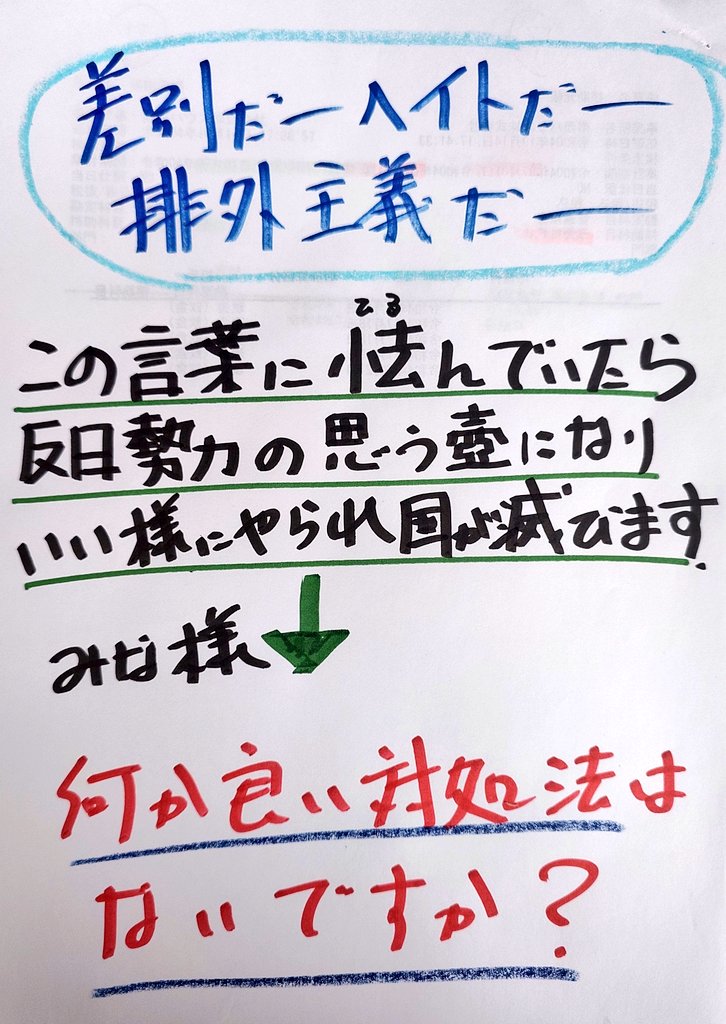 差別だーヘイトだー
排外主義だー
この言葉に怯んでいたら
反日勢力の思う壺になり
いい様にやられ国が滅びます.
みな様
何か良い対処法は
ないですか?